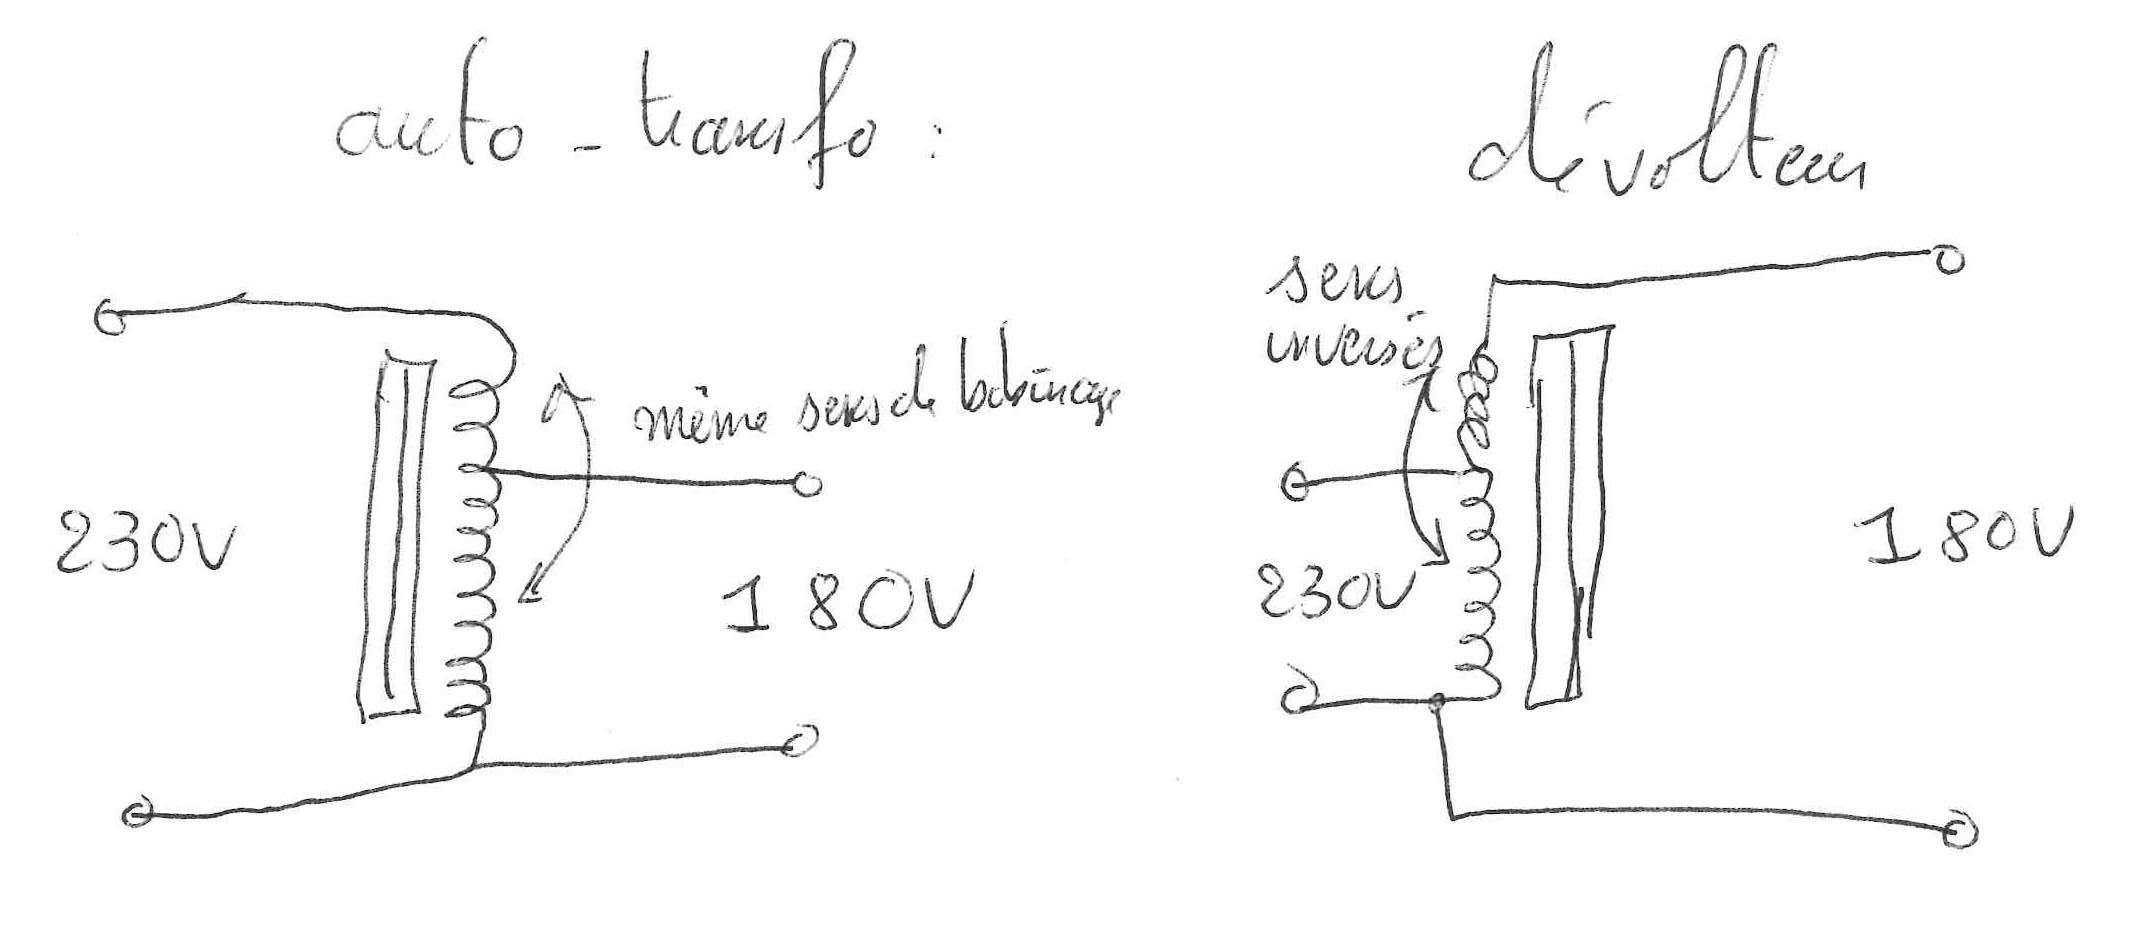 auto-transfo :
dévolteur
sens
inversés
même sens de bobinage
230V
180V
230V
180V